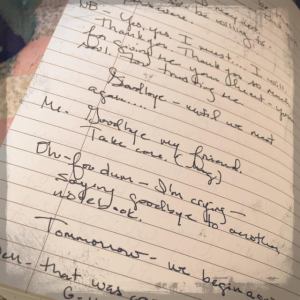 be willing to.
NB - Yes, yes. I must... I will.
Thank you. Thank you so much
for giving me your
for trusting me
Goodbye - until we meet
again....
Me. Goodbye my friend.
Take care. (hug)
Oh - for dum - I'm crying -
saying goodbye to another
notebook.
Tommorrow - we begin again
that was